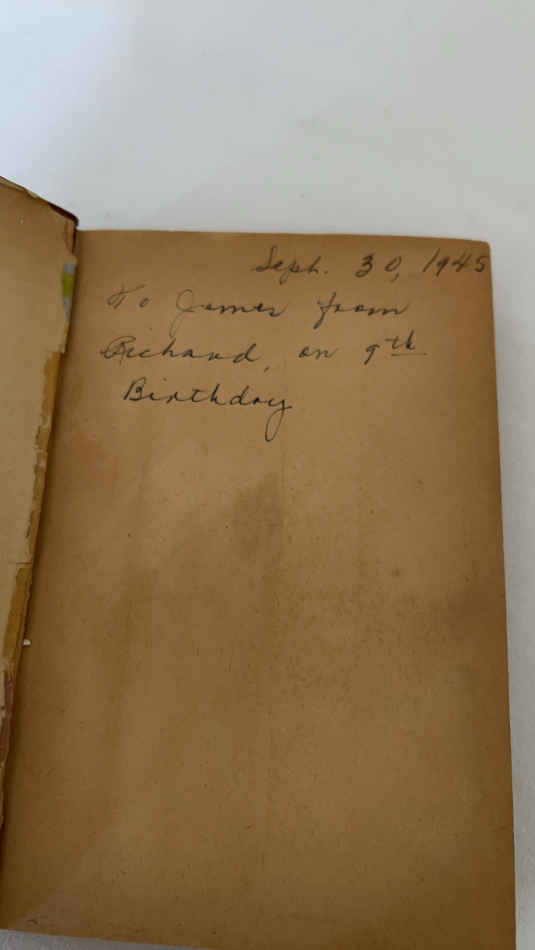 Sept. 30, 1945
To James from
Richard, on 9th
Birthday